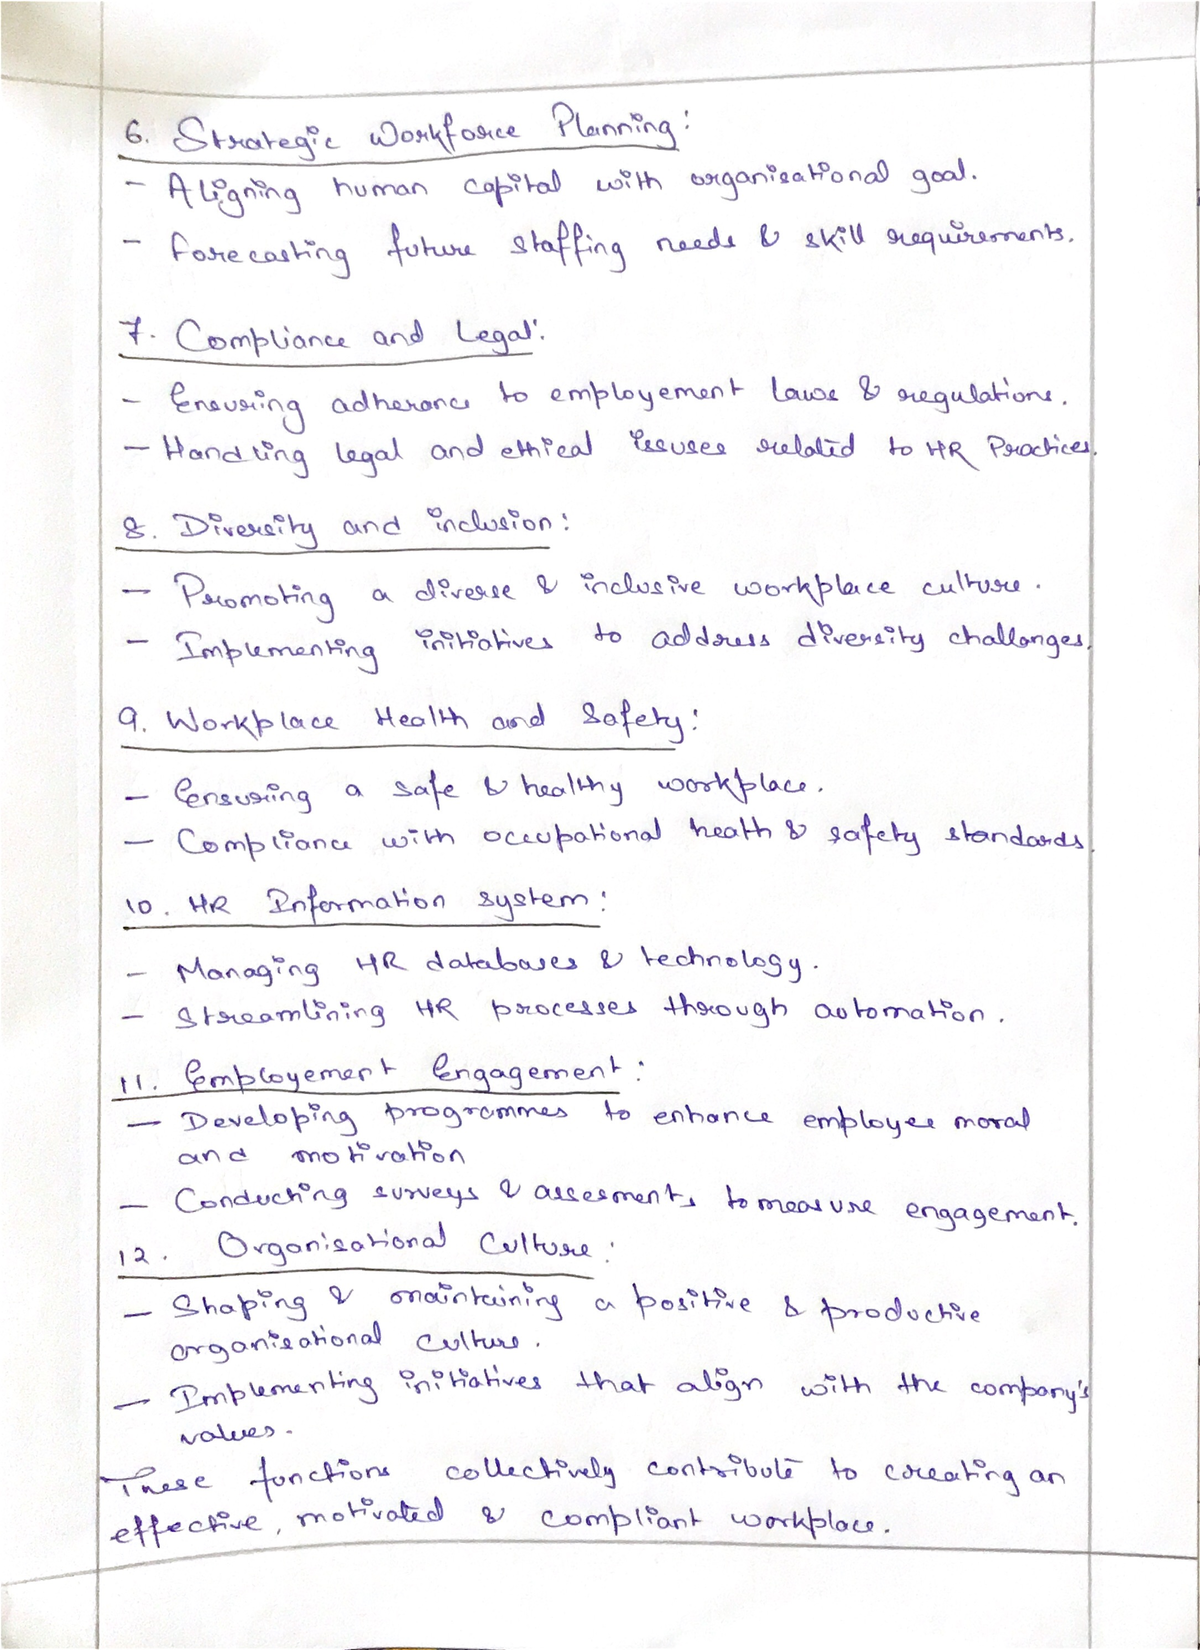 6. Strategic Workforce Planning:
- Aligning human capital with organisational goal.
- Forecasting future staffing needs & skill requirements.
7. Compliance and Legal:
- Ensuring adherance to employement laws & regulations.
- Handling legal and ethical issuses related to HR Practices.
8. Diversity and inclusion:
- Promoting a diverse & inclusive workplace culture.
- Implementing initiatives to address diversity challanges.
9. Workplace Health and Safety:
- Ensuring a safe & healthy workplace.
- Compliance with occupational heath & safety standards.
10. HR Information system:
- Managing HR databases & technology.
- Streamlining HR processes through automation.
11. Employement Engagement:
- Developing programmes to enhance employee moral
and motivation
- Conducting surveys & assesments to measure engagement.
12. Organisational Culture:
- Shaping & maintaining a positive & productive
organisational culture.
- Implementing initiatives that align with the company's
values.
These functions collectively contribute to creating an
effective, motivated & compliant workplace.